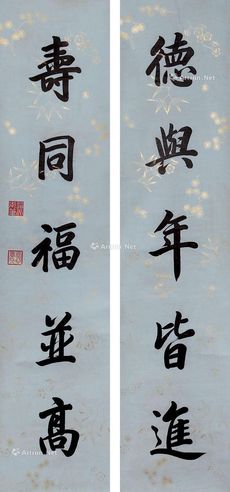 德與年皆進
壽同福並高
Artron.Net
Artron.Net